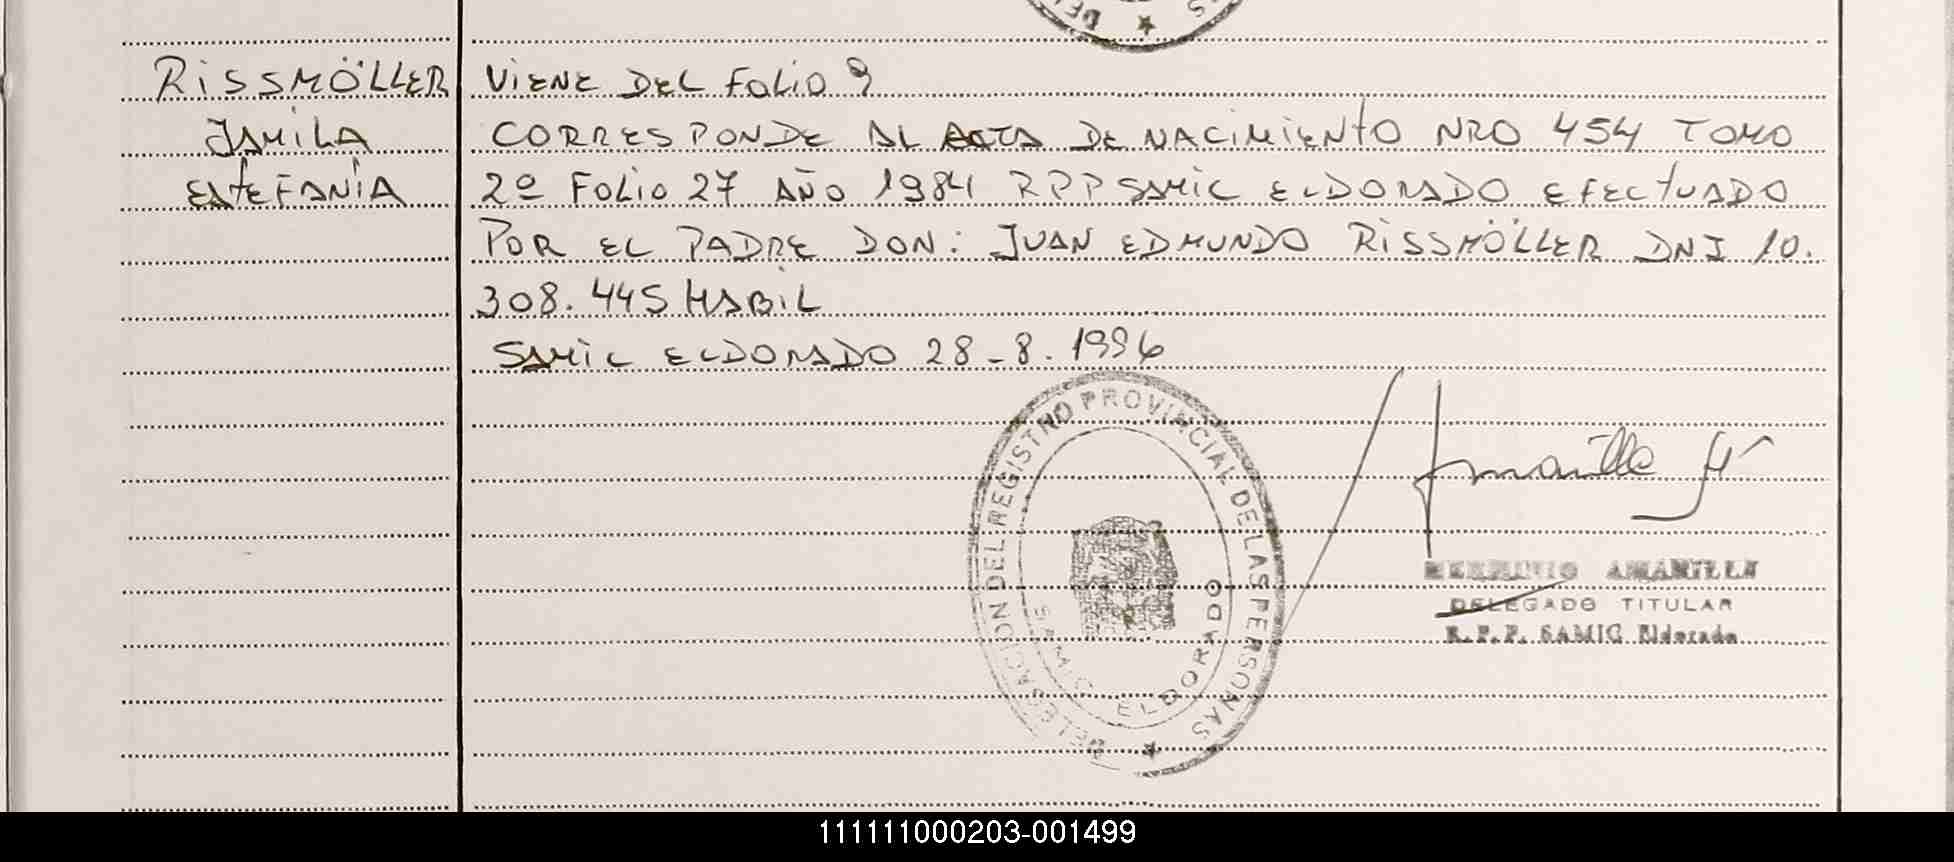 RISSMÖLLER VIENE DEL FOLIO 9
JAMILA CORRESPONDE AL ACTA DE NACIMIENTO NRO 454 TOMO
ESTEFANÍA 2º FOLIO 27 AÑO 1984 RPP SAMIC ELDORADO EFECTUADO
POR EL PADRE DON: JUAN EDMUNDO RISSMÖLLER DNI 10.
308.445 HABIL
SAMIC ELDORADO 28-8.1996
DELEGACION DEL REGISTRO PROVINCIAL DE LAS PERSONAS
SAMIC ELDORADO
AMARILLA
DELEGADO TITULAR
R.P.P. SAMIC Eldorado
111111000203-001499